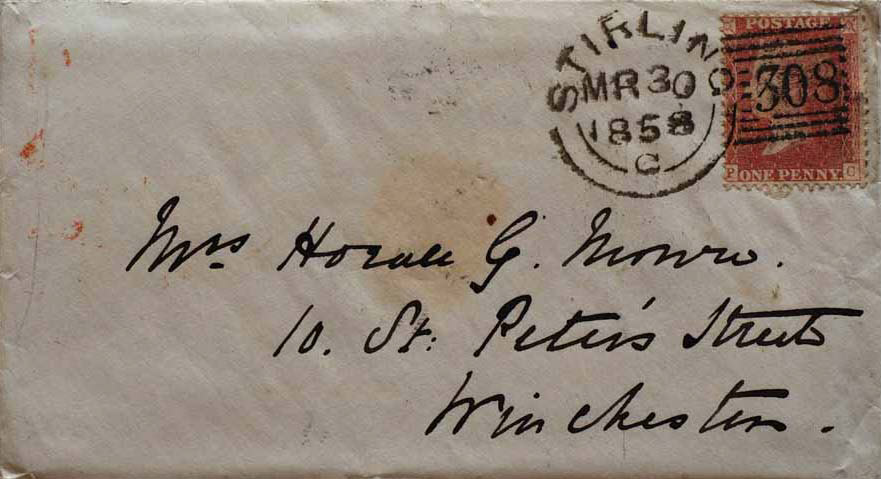 STIRLING
MR 30
1858
C
POSTAGE
308
P ONE PENNY C
Mrs Horace G. Monro.
10. St. Peter's Street
Winchester.